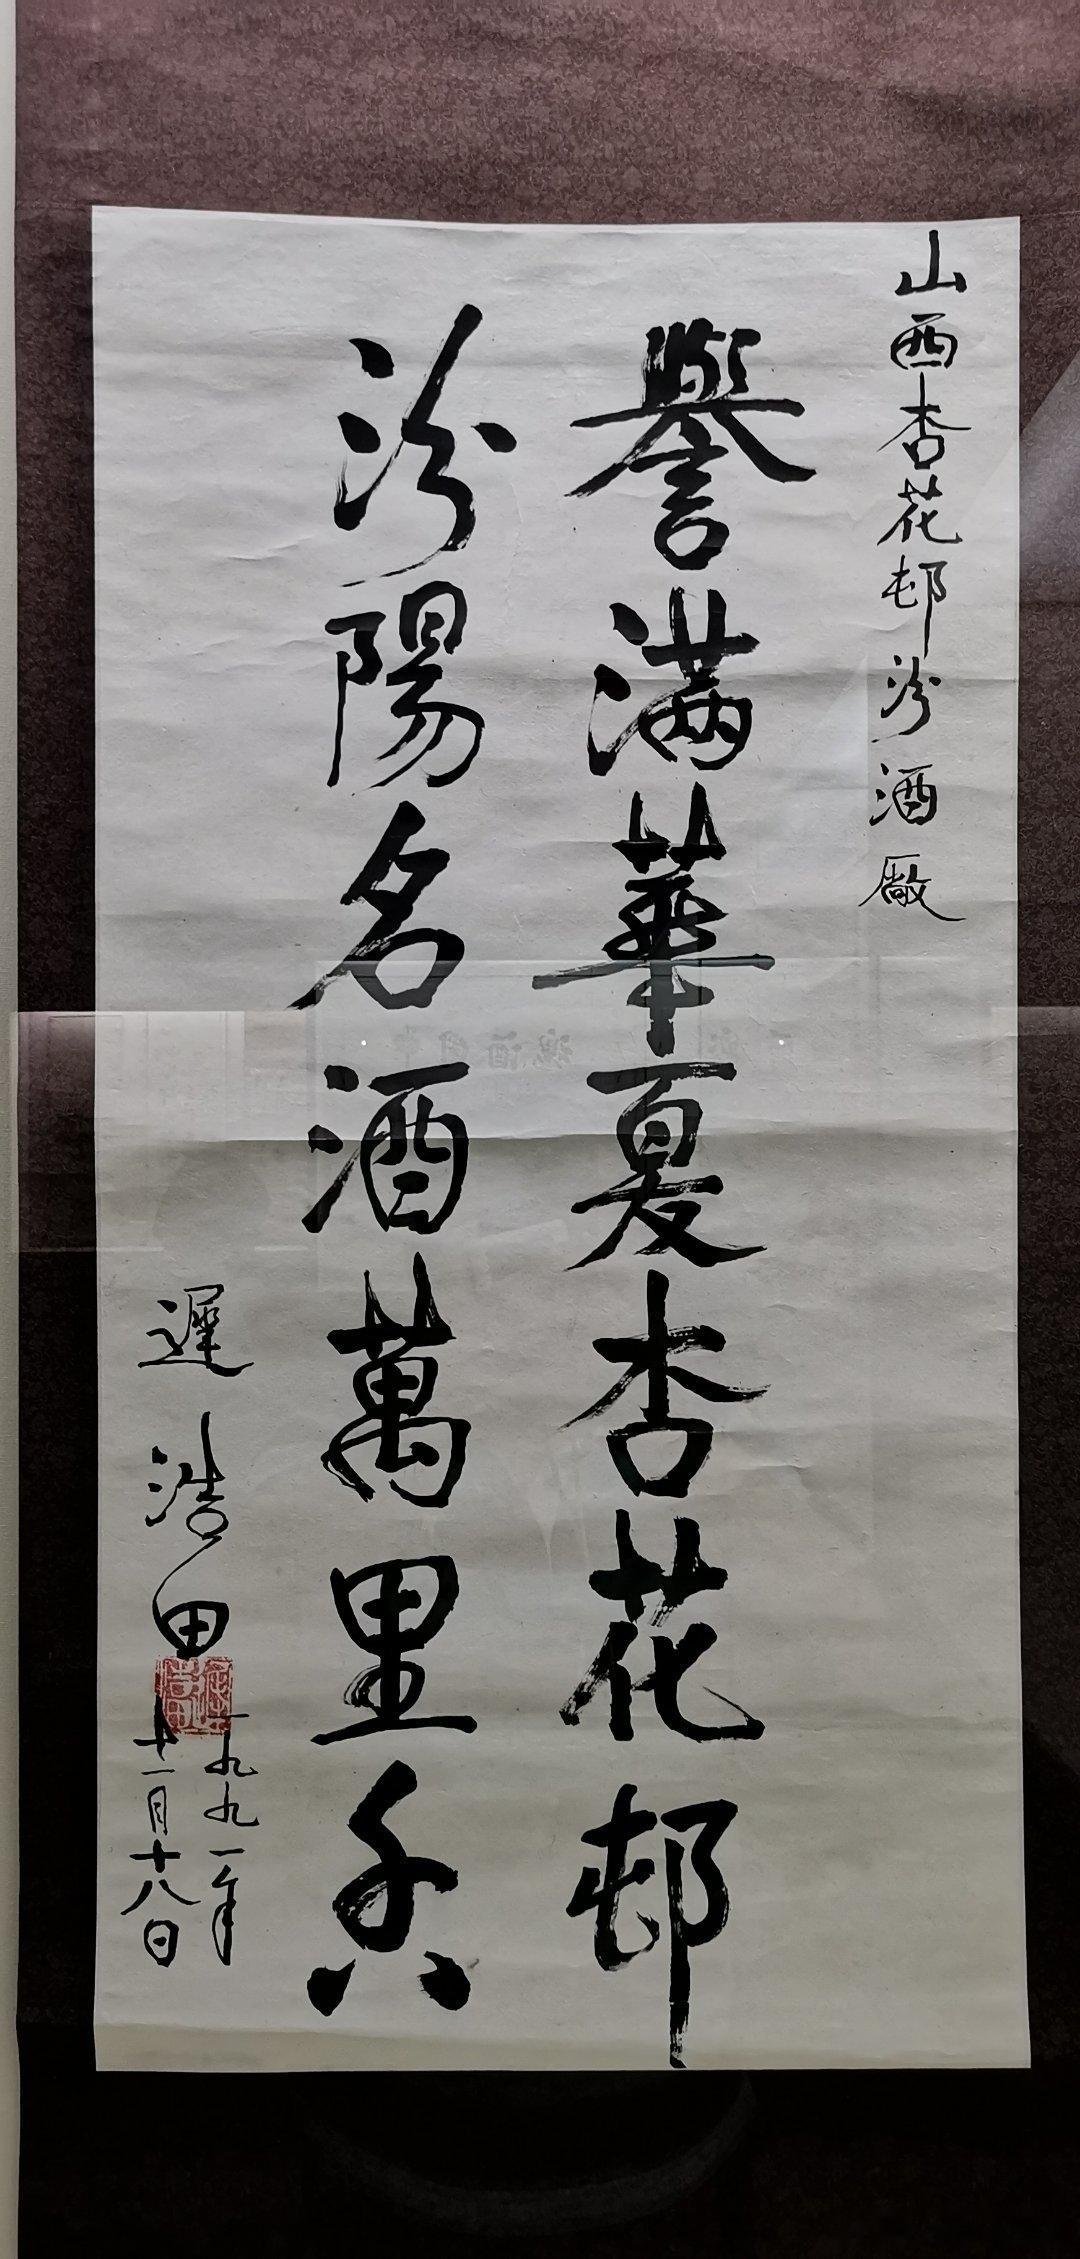 山西杏花邨汾酒廠
譽满華夏杏花邨
汾陽名酒萬里香
遲浩田
一九九一年
十一月十八日